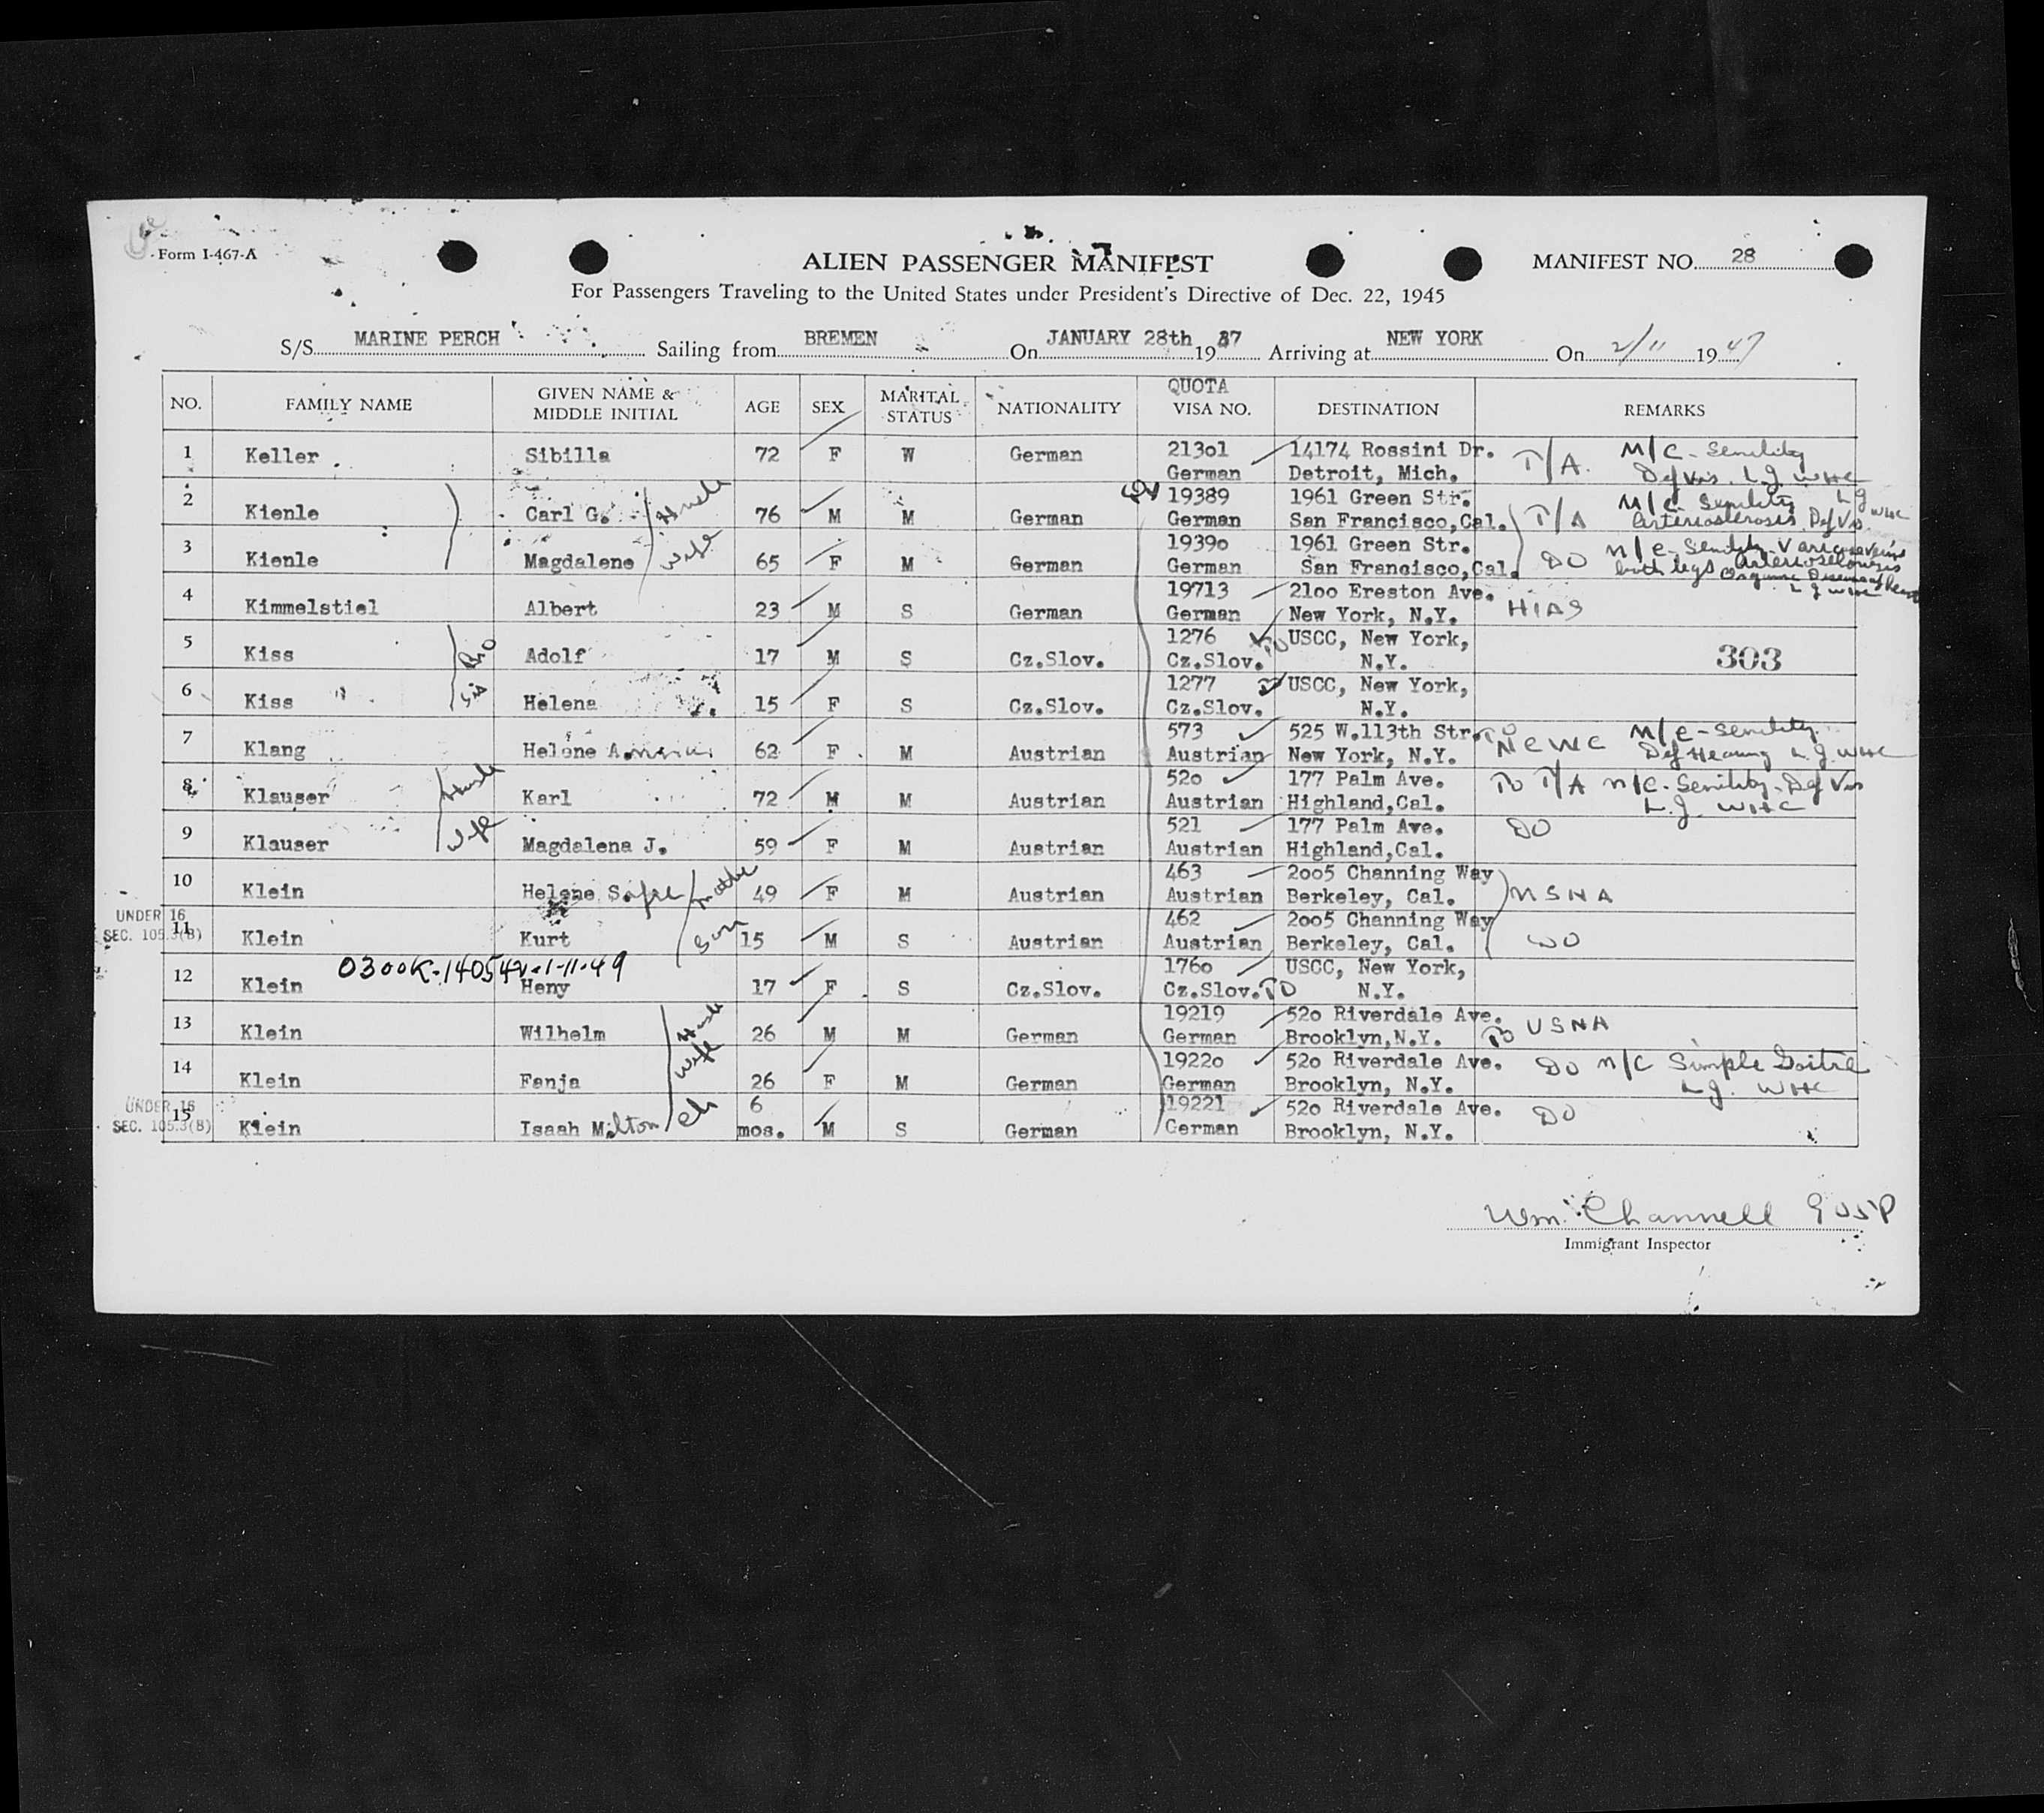 Form I-467-A
ALIEN PASSENGER MANIFEST
MANIFEST NO. 28
For Passengers Traveling to the United States under President's Directive of Dec. 22, 1945
S/S MARINE PERCH Sailing from BREMEN On JANUARY 28th 1947 Arriving at NEW YORK On 2/11 1947
NO. FAMILY NAME GIVEN NAME & MIDDLE INITIAL AGE SEX MARITAL STATUS NATIONALITY QUOTA VISA NO. DESTINATION REMARKS
1 Keller Sibilla 72 F W German 21301 14174 Rossini Dr. T/A. M/C - Senility
German Detroit, Mich. Def Vis. L.J. WHC
2 Kienle Carl G. Husb 76 M M German 19389 1961 Green Str. T/A M/C - Senility L J WHC
German San Francisco, Cal. Arteriosclerosis Def Vis.
3 Kienle Magdalene Wife 65 F M German 19390 1961 Green Str. DO M/C - Senility - Varicose veins
German San Francisco, Cal. both legs Arteriosclerosis
Organic Disease of heart
L J WHC
4 Kimmelstiel Albert 23 M S German 19713 2100 Ereston Ave. HIAS
German New York, N.Y.
5 Kiss Bro Adolf 17 M S Cz.Slov. 1276 USCC, New York,
Cz.Slov. TD N.Y. 303
6 Kiss Sis Helena 15 F S Cz.Slov. 1277 TD USCC, New York,
Cz.Slov. N.Y.
7 Klang Helene A. 62 F M Austrian 573 525 W.113th Str. TD NCWC M/C - Senility
Austrian New York, N.Y. Def Hearing L.J. WHC
8 Klauser Husb Karl 72 M M Austrian 520 177 Palm Ave. TD T/A M/C - Senility - Def Vis
Austrian Highland, Cal. L.J. WHC
9 Klauser Wife Magdalena J. 59 F M Austrian 521 177 Palm Ave. DO
Austrian Highland, Cal.
10 Klein Helene S. Mother 49 F M Austrian 463 2005 Channing Way
Austrian Berkeley, Cal. USNA
UNDER 16
SEC. 105.3(B)
11 Klein Kurt Son 15 M S Austrian 462 2005 Channing Way
Austrian Berkeley, Cal. DO
0300K-14054 1-11-49
12 Klein Heny 17 F S Cz.Slov. 1760 USCC, New York,
Cz.Slov. TD N.Y.
13 Klein Wilhelm Husb 26 M M German 19219 520 Riverdale Ave.
German Brooklyn, N.Y. TD USNA
14 Klein Fanja Wife 26 F M German 19220 520 Riverdale Ave. DO M/C Simple Goitre
German Brooklyn, N.Y. L.J. WHC
UNDER 16
SEC. 105.3(B)
15 Klein Isaah Milton Ch 6 mos. M S German 19221 520 Riverdale Ave. DO
German Brooklyn, N.Y.
Wm. Channell
Immigrant Inspector